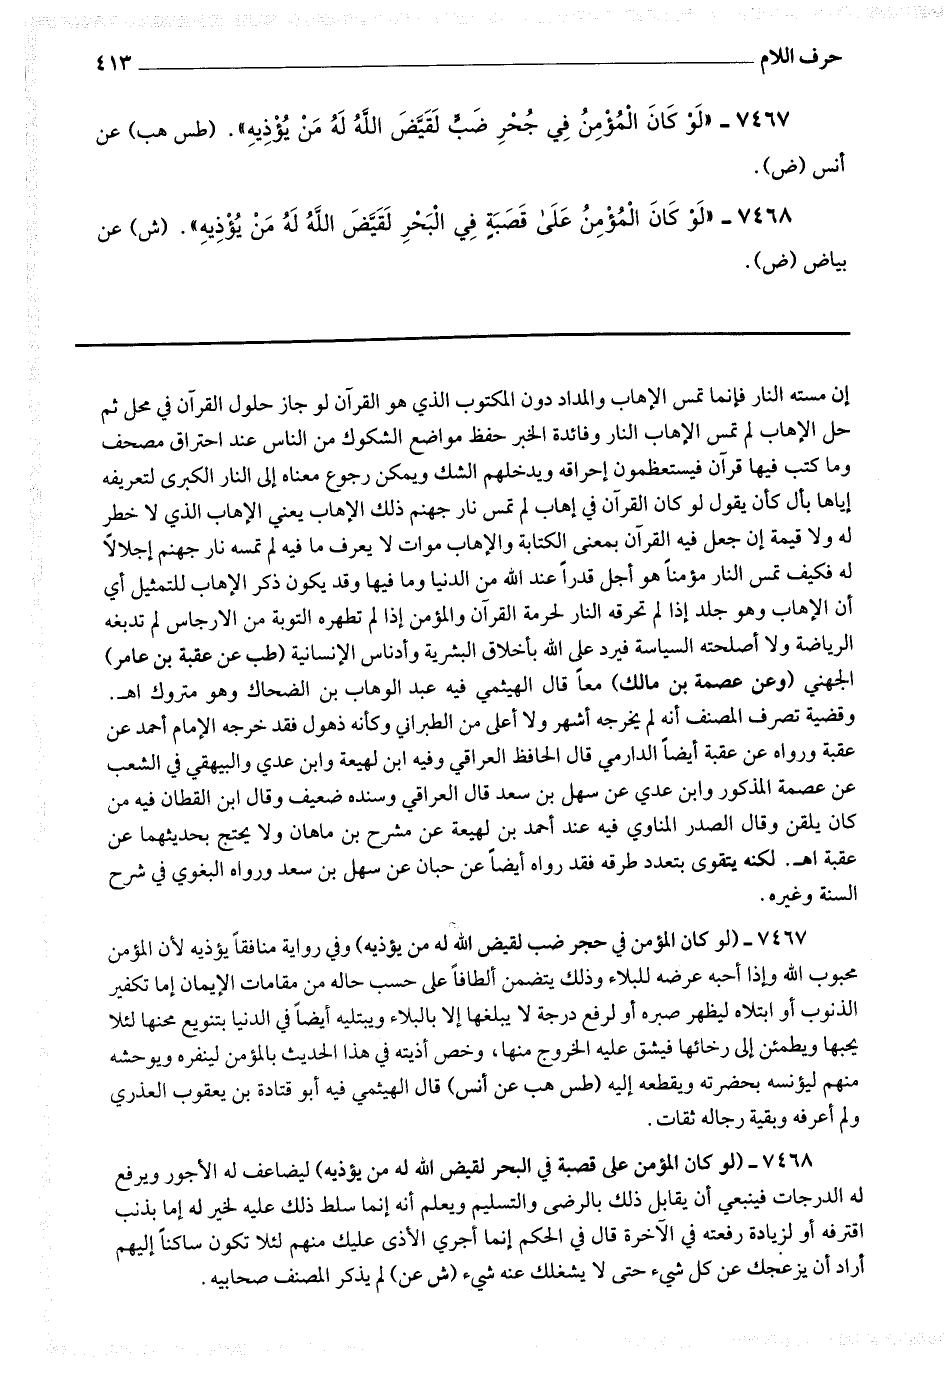 حرف اللام ٤١٣
٧٤٦٧ ـ «لَوْ كَانَ الْمُؤْمِنُ فِي جُحْرِ ضَبٍّ لَقَيَّضَ اللَّهُ لَهُ مَنْ يُؤْذِيهِ». (طس هب) عن
أنس (ض).
٧٤٦٨ ـ «لَوْ كَانَ الْمُؤْمِنُ عَلَىٰ قَصَبَةٍ فِي الْبَحْرِ لَقَيَّضَ اللَّهُ لَهُ مَنْ يُؤْذِيهِ». (ش) عن
بياض (ض).
إن مسته النار فإنما تمس الإهاب والمداد دون المكتوب الذي هو القرآن لو جاز حلول القرآن في محل ثم
حل الإهاب لم تمس الإهاب النار وفائدة الخبر حفظ مواضع الشكوك من الناس عند احتراق مصحف
وما كتب فيها قرآن فيستعظمون إحراقه ويدخلهم الشك ويمكن رجوع معناه إلى النار الكبرى لتعريفه
إياها بأل كأن يقول لو كان القرآن في إهاب لم تمس نار جهنم ذلك الإهاب يعني الإهاب الذي لا خطر
له ولا قيمة إن جعل فيه القرآن بمعنى الكتابة والإهاب موات لا يعرف ما فيه لم تمسه نار جهنم إجلالاً
له فكيف تمس النار مؤمناً هو أجل قدراً عند الله من الدنيا وما فيها وقد يكون ذكر الإهاب للتمثيل أي
أن الإهاب وهو جلد إذا لم تحرقه النار لحرمة القرآن والمؤمن إذا لم تطهره التوبة من الارجاس لم تدبغه
الرياضة ولا أصلحته السياسة فيرد على الله بأخلاق البشرية وأدناس الإنسانية (طب عن عقبة بن عامر)
الجهني (وعن عصمة بن مالك) معاً قال الهيثمي فيه عبد الوهاب بن الضحاك وهو متروك اهـ.
وقضية تصرف المصنف أنه لم يخرجه أشهر ولا أعلى من الطبراني وكأنه ذهول فقد خرجه الإمام أحمد عن
عقبة ورواه عن عقبة أيضاً الدارمي قال الحافظ العراقي وفيه ابن لهيعة وابن عدي والبيهقي في الشعب
عن عصمة المذكور وابن عدي عن سهل بن سعد قال العراقي وسنده ضعيف وقال ابن القطان فيه من
كان يلقن وقال الصدر المناوي فيه عند أحمد بن لهيعة عن مشرح بن ماهان ولا يحتج بحديثهما عن
عقبة اهـ. لكنه يتقوى بتعدد طرقه فقد رواه أيضاً عن حبان عن سهل بن سعد ورواه البغوي في شرح
السنة وغيره.
٧٤٦٧ ـ (لو كان المؤمن في حجر ضب لقيض الله له من يؤذيه) وفي رواية منافقاً يؤذيه لأن المؤمن
محبوب الله وإذا أحبه عرضه للبلاء وذلك يتضمن ألطافاً على حسب حاله من مقامات الإيمان إما تكفير
الذنوب أو ابتلاه ليظهر صبره أو لرفع درجة لا يبلغها إلا بالبلاء ويبتليه أيضاً في الدنيا بتنويع محنها لئلا
يحبها ويطمئن إلى رخائها فيشق عليه الخروج منها، وخص أذيته في هذا الحديث بالمؤمن لينفره ويوحشه
منهم ليؤنسه بحضرته ويقطعه إليه (طس هب عن أنس) قال الهيثمي فيه أبو قتادة بن يعقوب العذري
ولم أعرفه وبقية رجاله ثقات.
٧٤٦٨ ـ (لو كان المؤمن على قصبة في البحر لقيض الله له من يؤذيه) ليضاعف له الأجور ويرفع
له الدرجات فينبغي أن يقابل ذلك بالرضى والتسليم ويعلم أنه إنما سلط ذلك عليه لخير له إما بذنب
اقترفه أو لزيادة رفعته في الآخرة قال في الحكم إنما أجري الأذى عليك منهم لئلا تكون ساكناً إليهم
أراد أن يزعجك عن كل شيء حتى لا يشغلك عنه شيء (ش عن) لم يذكر المصنف صحابيه.